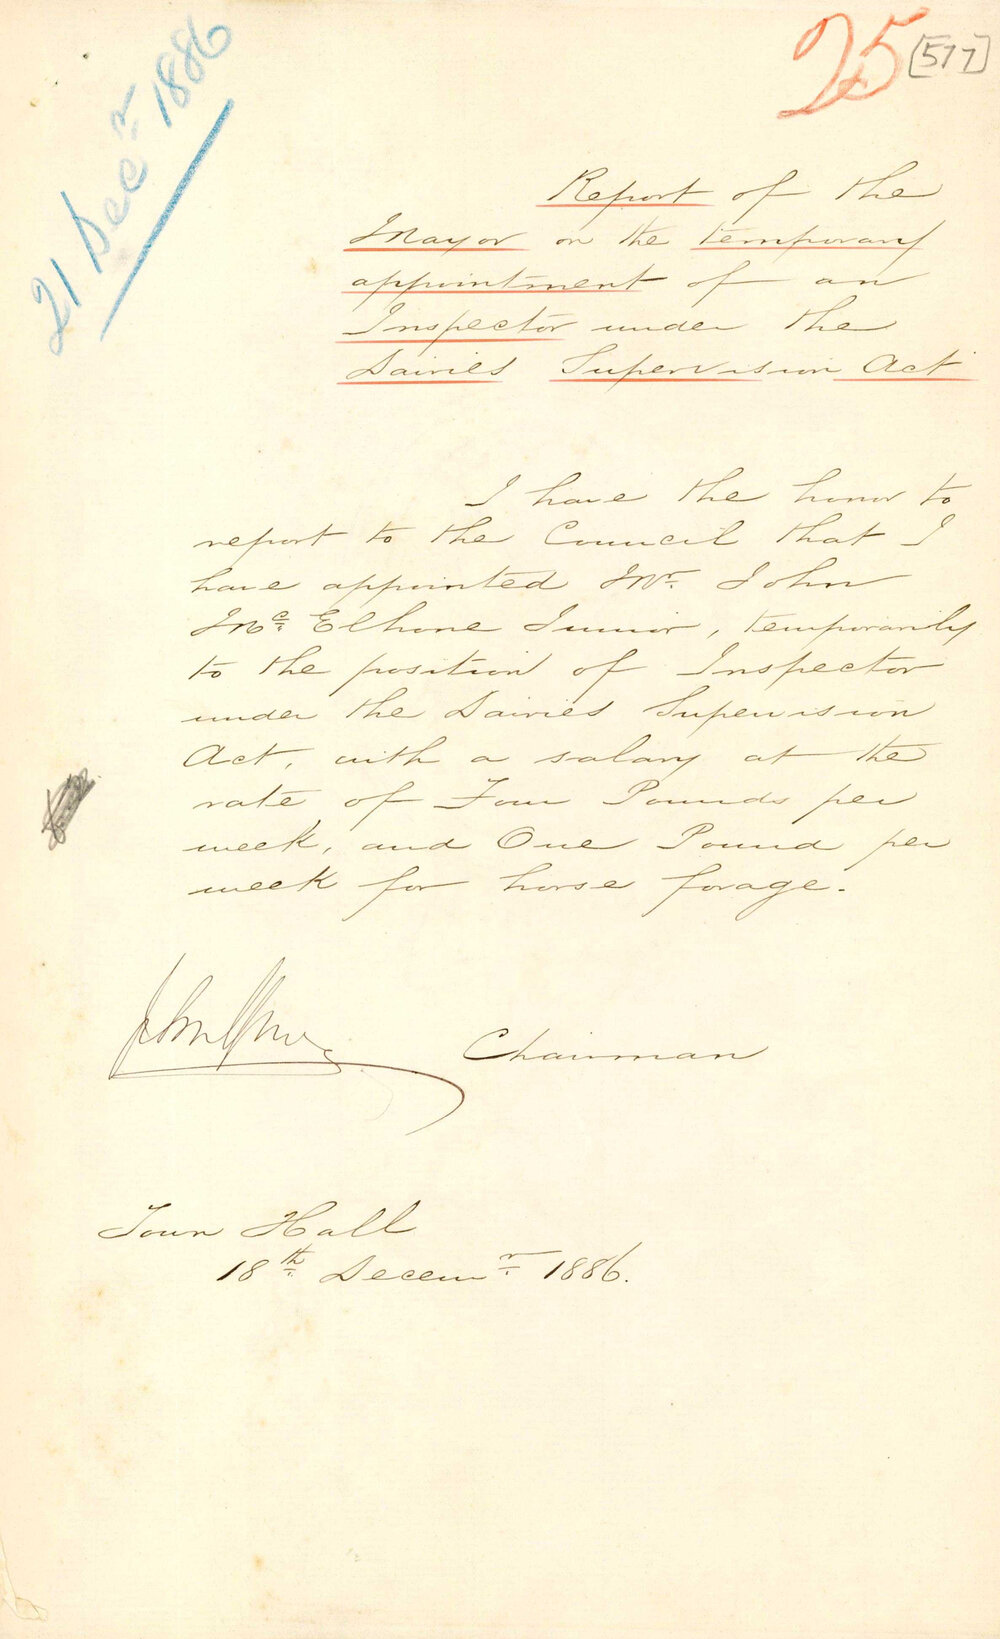 21 Decr 1886
25 [577]
Report of the
Mayor on the temporary
appointment of an
Inspector under the
Dairies Supervision Act
I have the honor to
report to the Council that I
have appointed Mr. John
Mc. Elhone Junior, temporarily
to the position of Inspector
under the Dairies Supervision
Act, with a salary at the
rate of Four Pounds per
week, and One Pound per
week for horse forage.
Chairman
Town Hall
18th. Decemr. 1886.